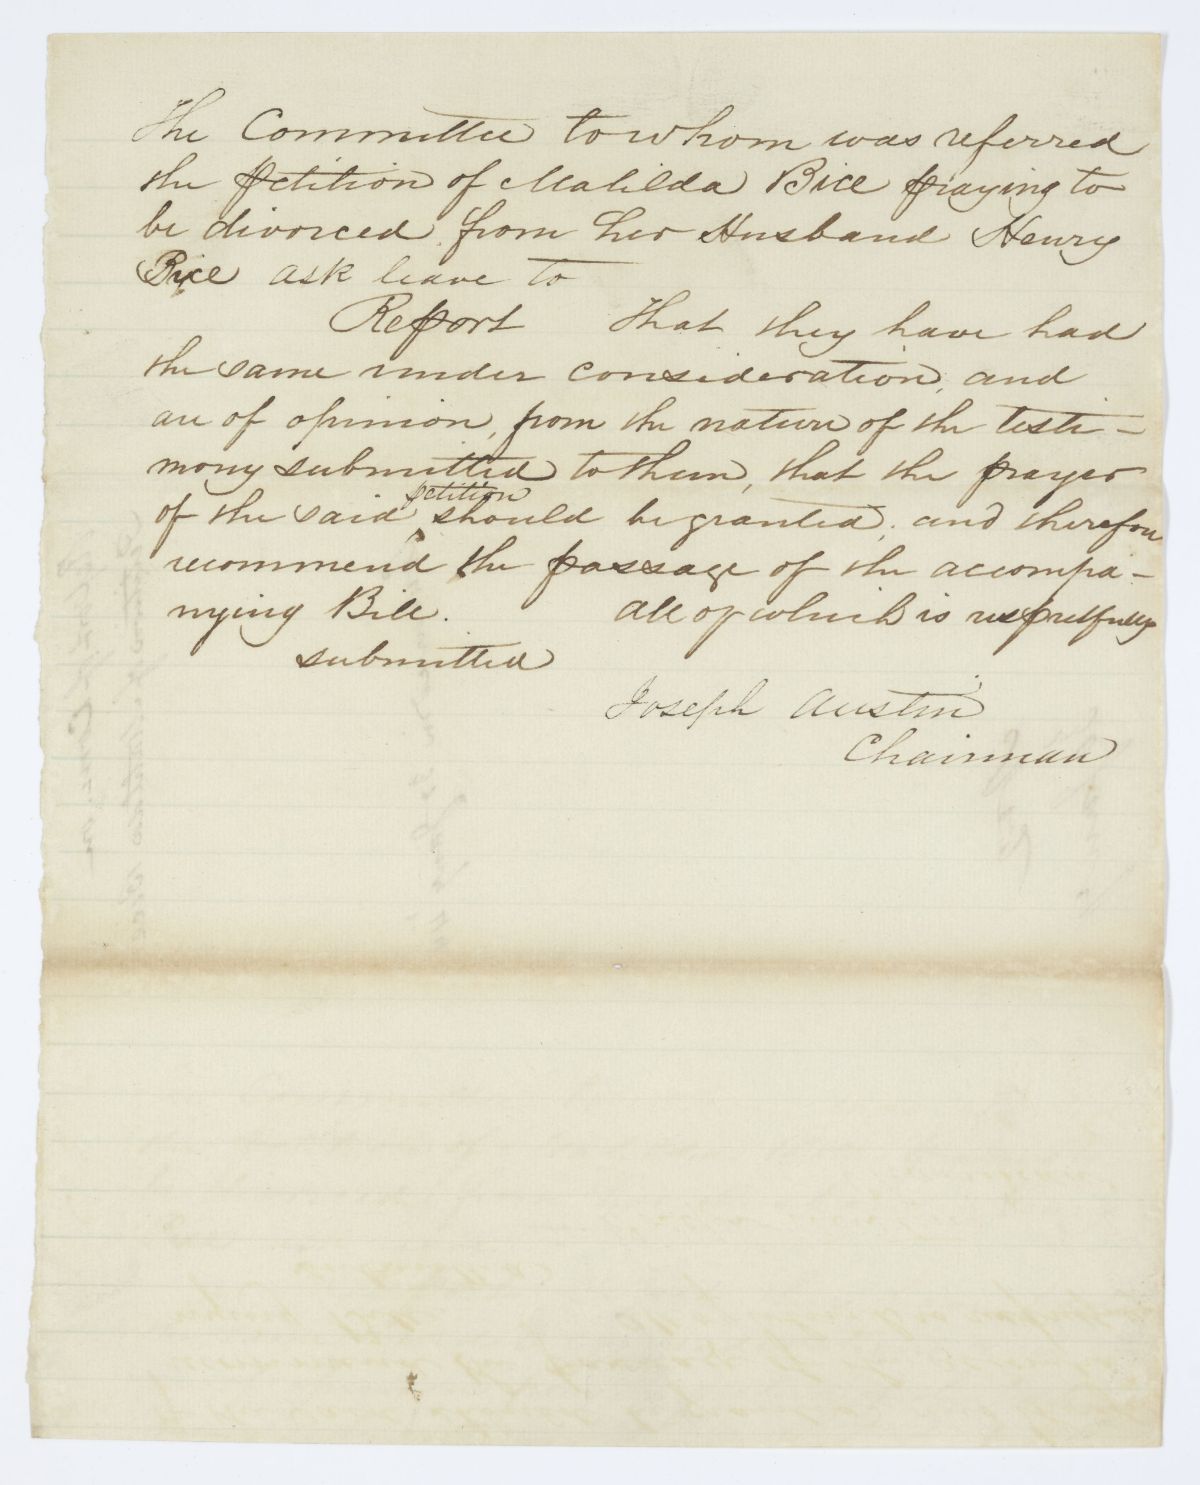 The Committee to whom was referred
the petition of Matilda Bice praying to
be divorced from her Husband Henry
Bice ask leave to
Report That they have had
the same under consideration, and
are of opinion, from the nature of the testi-
mony submitted to them, that the prayer
of the said petition should be granted, and therefore
recommend the passage of the accompa-
nying Bill. All of which is respectfully
submitted
Joseph Austin
Chairman